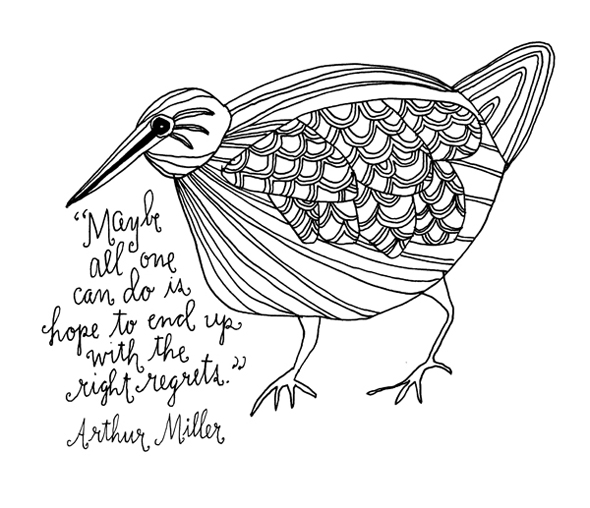 “Maybe
all one
can do is
hope to end up
with the
right regrets.”
Arthur Miller